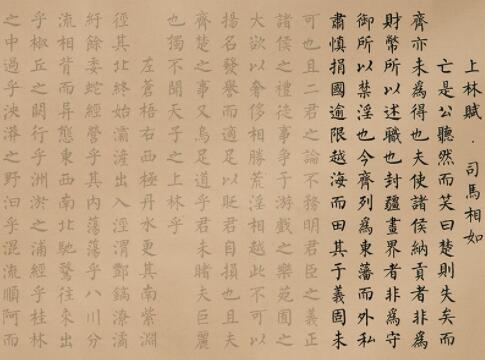 上林賦．司馬相如
亡是公聽然而笑曰楚則失矣而
齊亦未為得也夫使諸侯納貢者非為
財幣所以述職也封疆畫界者非為守
御所以禁淫也今齊列為東藩而外私
肅慎捐國逾限越海而田其于義固未
可也且二君之論不務明君臣之義正
諸侯之禮徒事爭于游戲之樂苑囿之
大欲以奢侈相勝荒淫相越此不可以
揚名發譽而適足以貶君自損也且夫
齊楚之事又烏足道乎君未睹夫巨麗
也獨不聞天子之上林乎
左蒼梧右西極丹水更其南紫淵
徑其北終始灞滻出入涇渭酆鎬潦潏
紆餘委蛇經營乎其內蕩蕩乎八川分
流相背而异態東西南北馳騖往來出
乎椒丘之闕行乎洲淤之浦經乎桂林
之中過乎泱漭之野汩乎混流順阿而